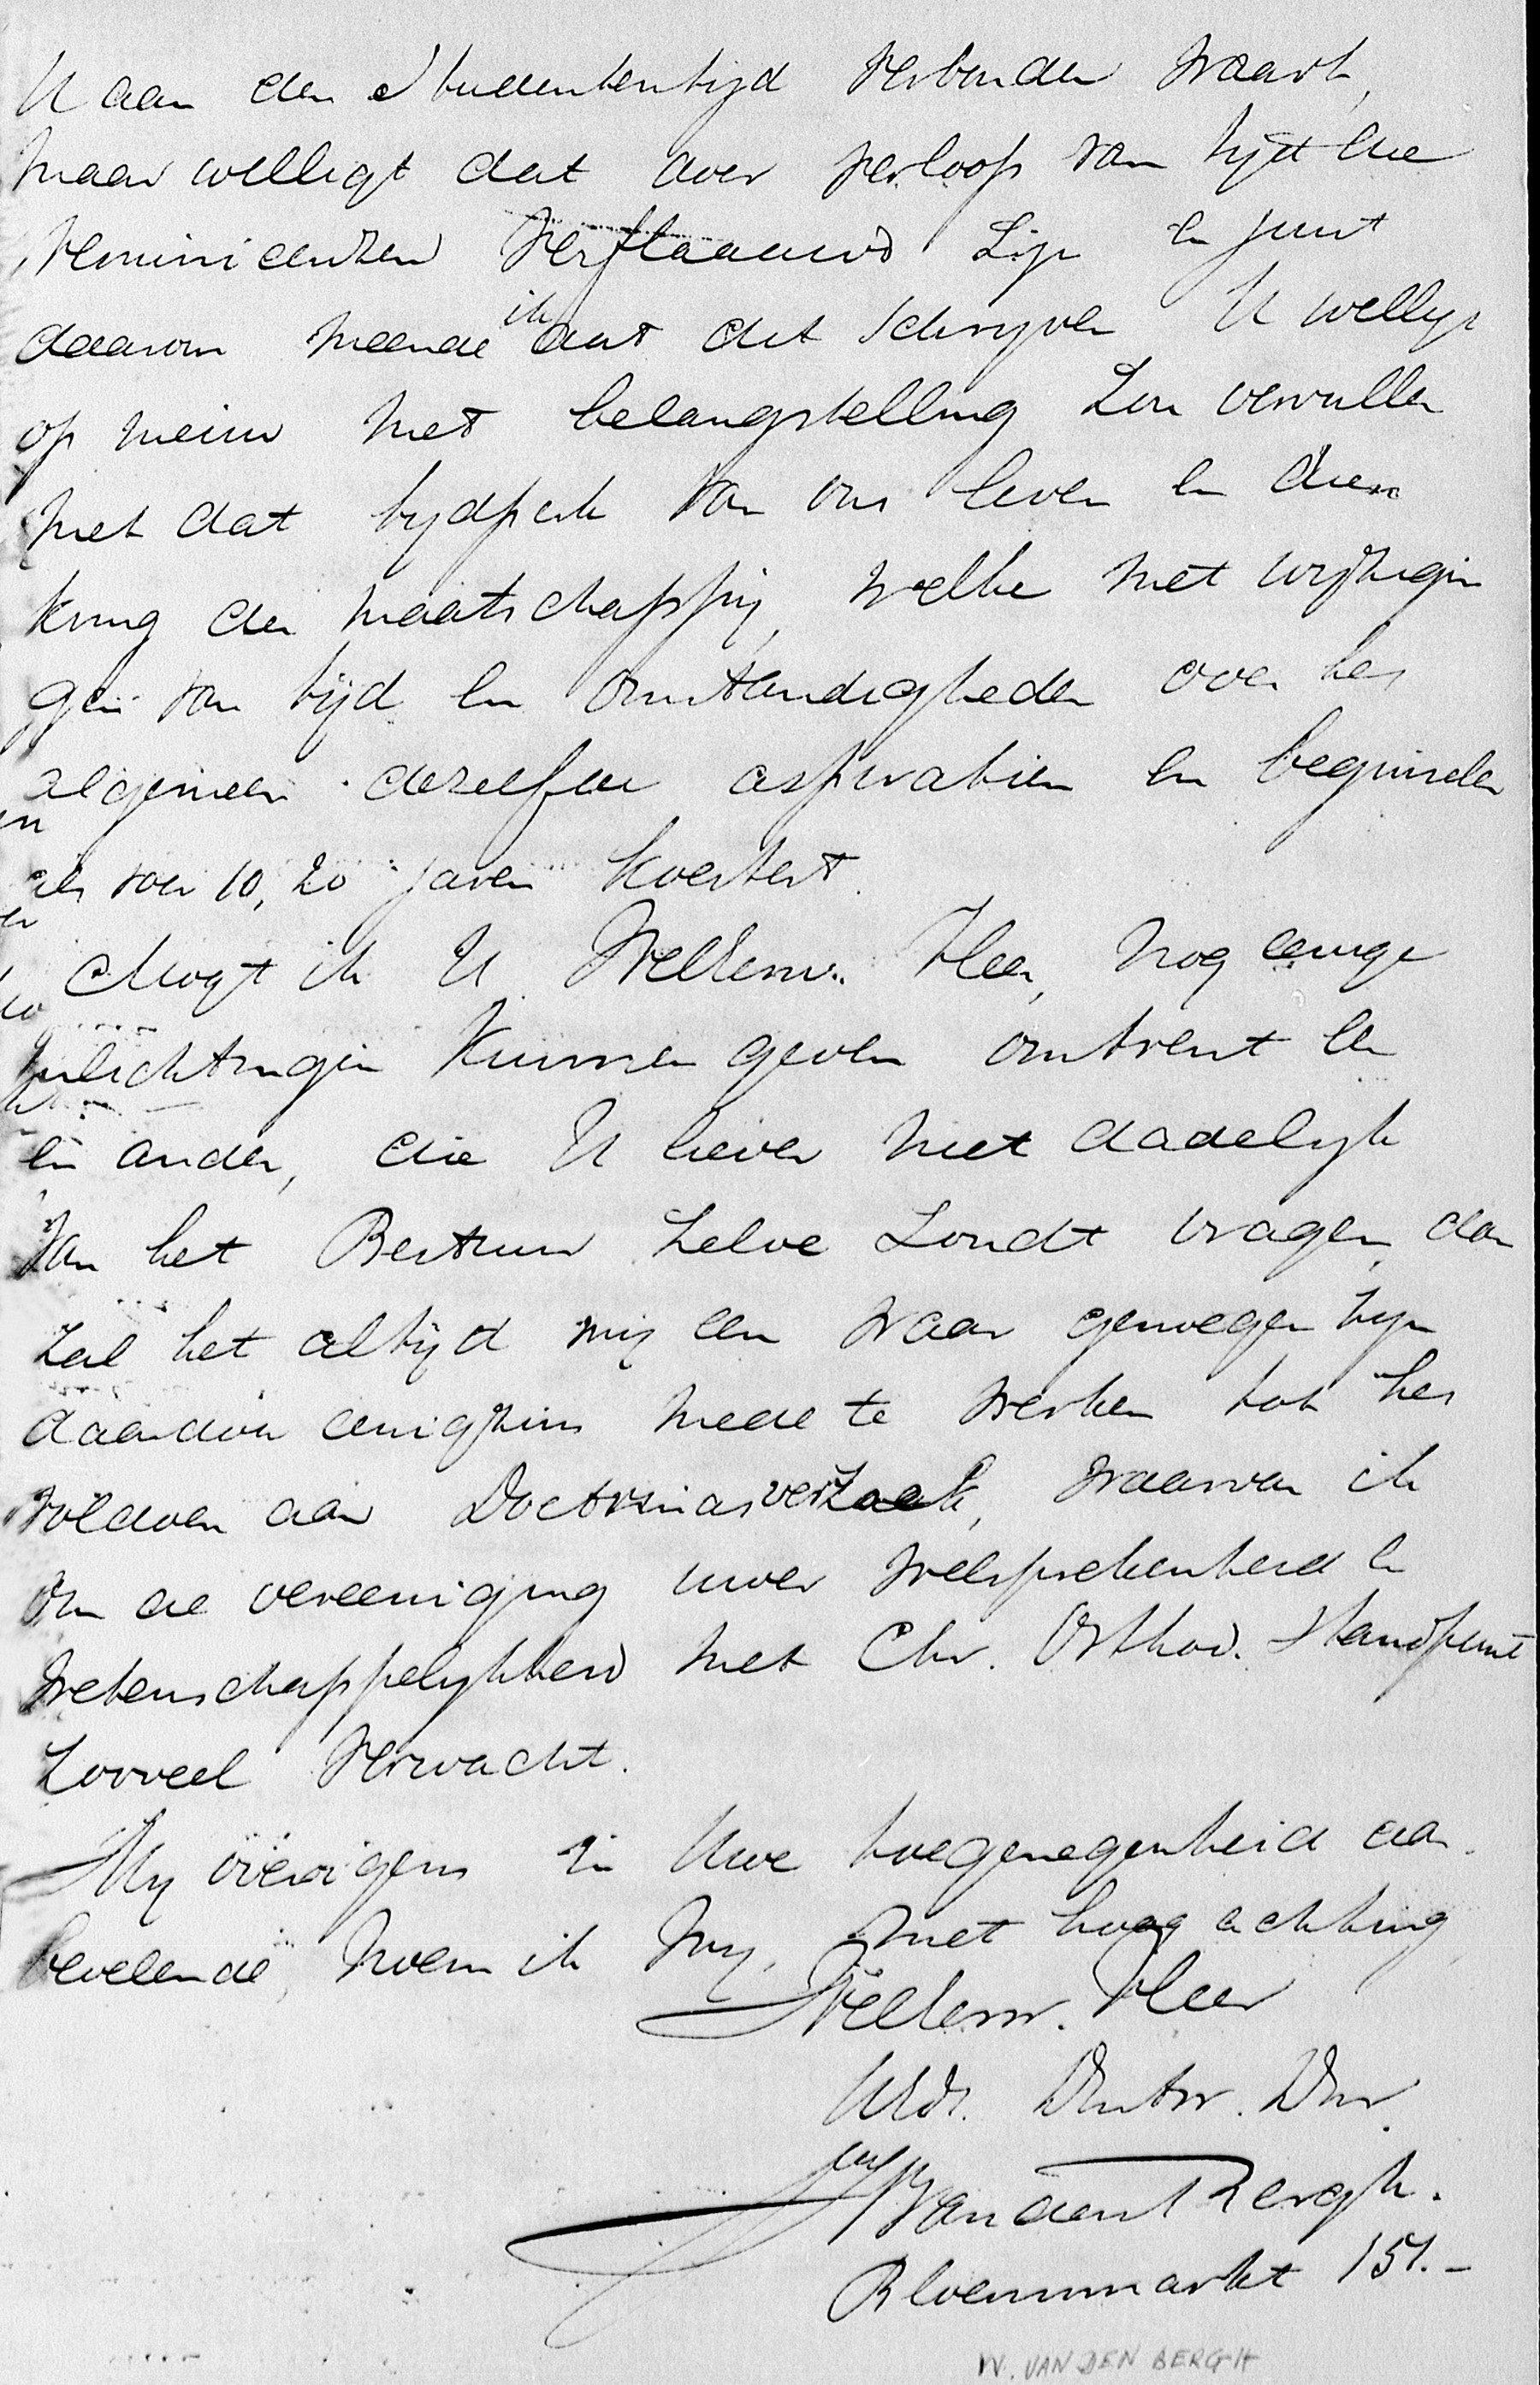 U aan den Studententijd verbonden waart,
maar welligt dat door verloop van tijd die
reminicenzen verflaauwd zijn en juist
daarom meende ik dat dit schrijven U welligt
op nieuw met belangstelling zou vervullen
met dat tijdperk van ons leven en dien
kring der maatschappij, welke met wijzigin
gen van tijd en omstandigheden over het
algemeen dezelfde aspiratien en beginselen
als voor 10, 20 jaren koestert.
Mogt ik U WelEerw. Heer, nog eenige
inlichtingen kunnen geven omtrent een
en ander, die U liever niet dadelijk
van het Bestuur zelve zoudt vragen, dan
zal het altijd mij een waar genoegen zijn
daardoor eenigzins mede te werken tot het
voldoen aan Doctrinas verzoek, waarvan ik
om de vereeniging uwer welsprekenheid en
wetenschappelijkheid met Chr. Orthod. Standpunt
zooveel verwacht.
Mij overigens in Uwe toegenegenheid aan
bevelende, noem ik mij, met hoogachting,
WelEerw. Heer
UEdl. Dw. Dnr.
W van den Bergh.
Bloemmarkt 151.-
W. VAN DEN BERGH